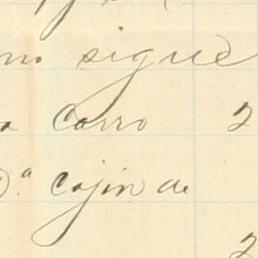 sigue
carro 2
D.ª cojin de
2